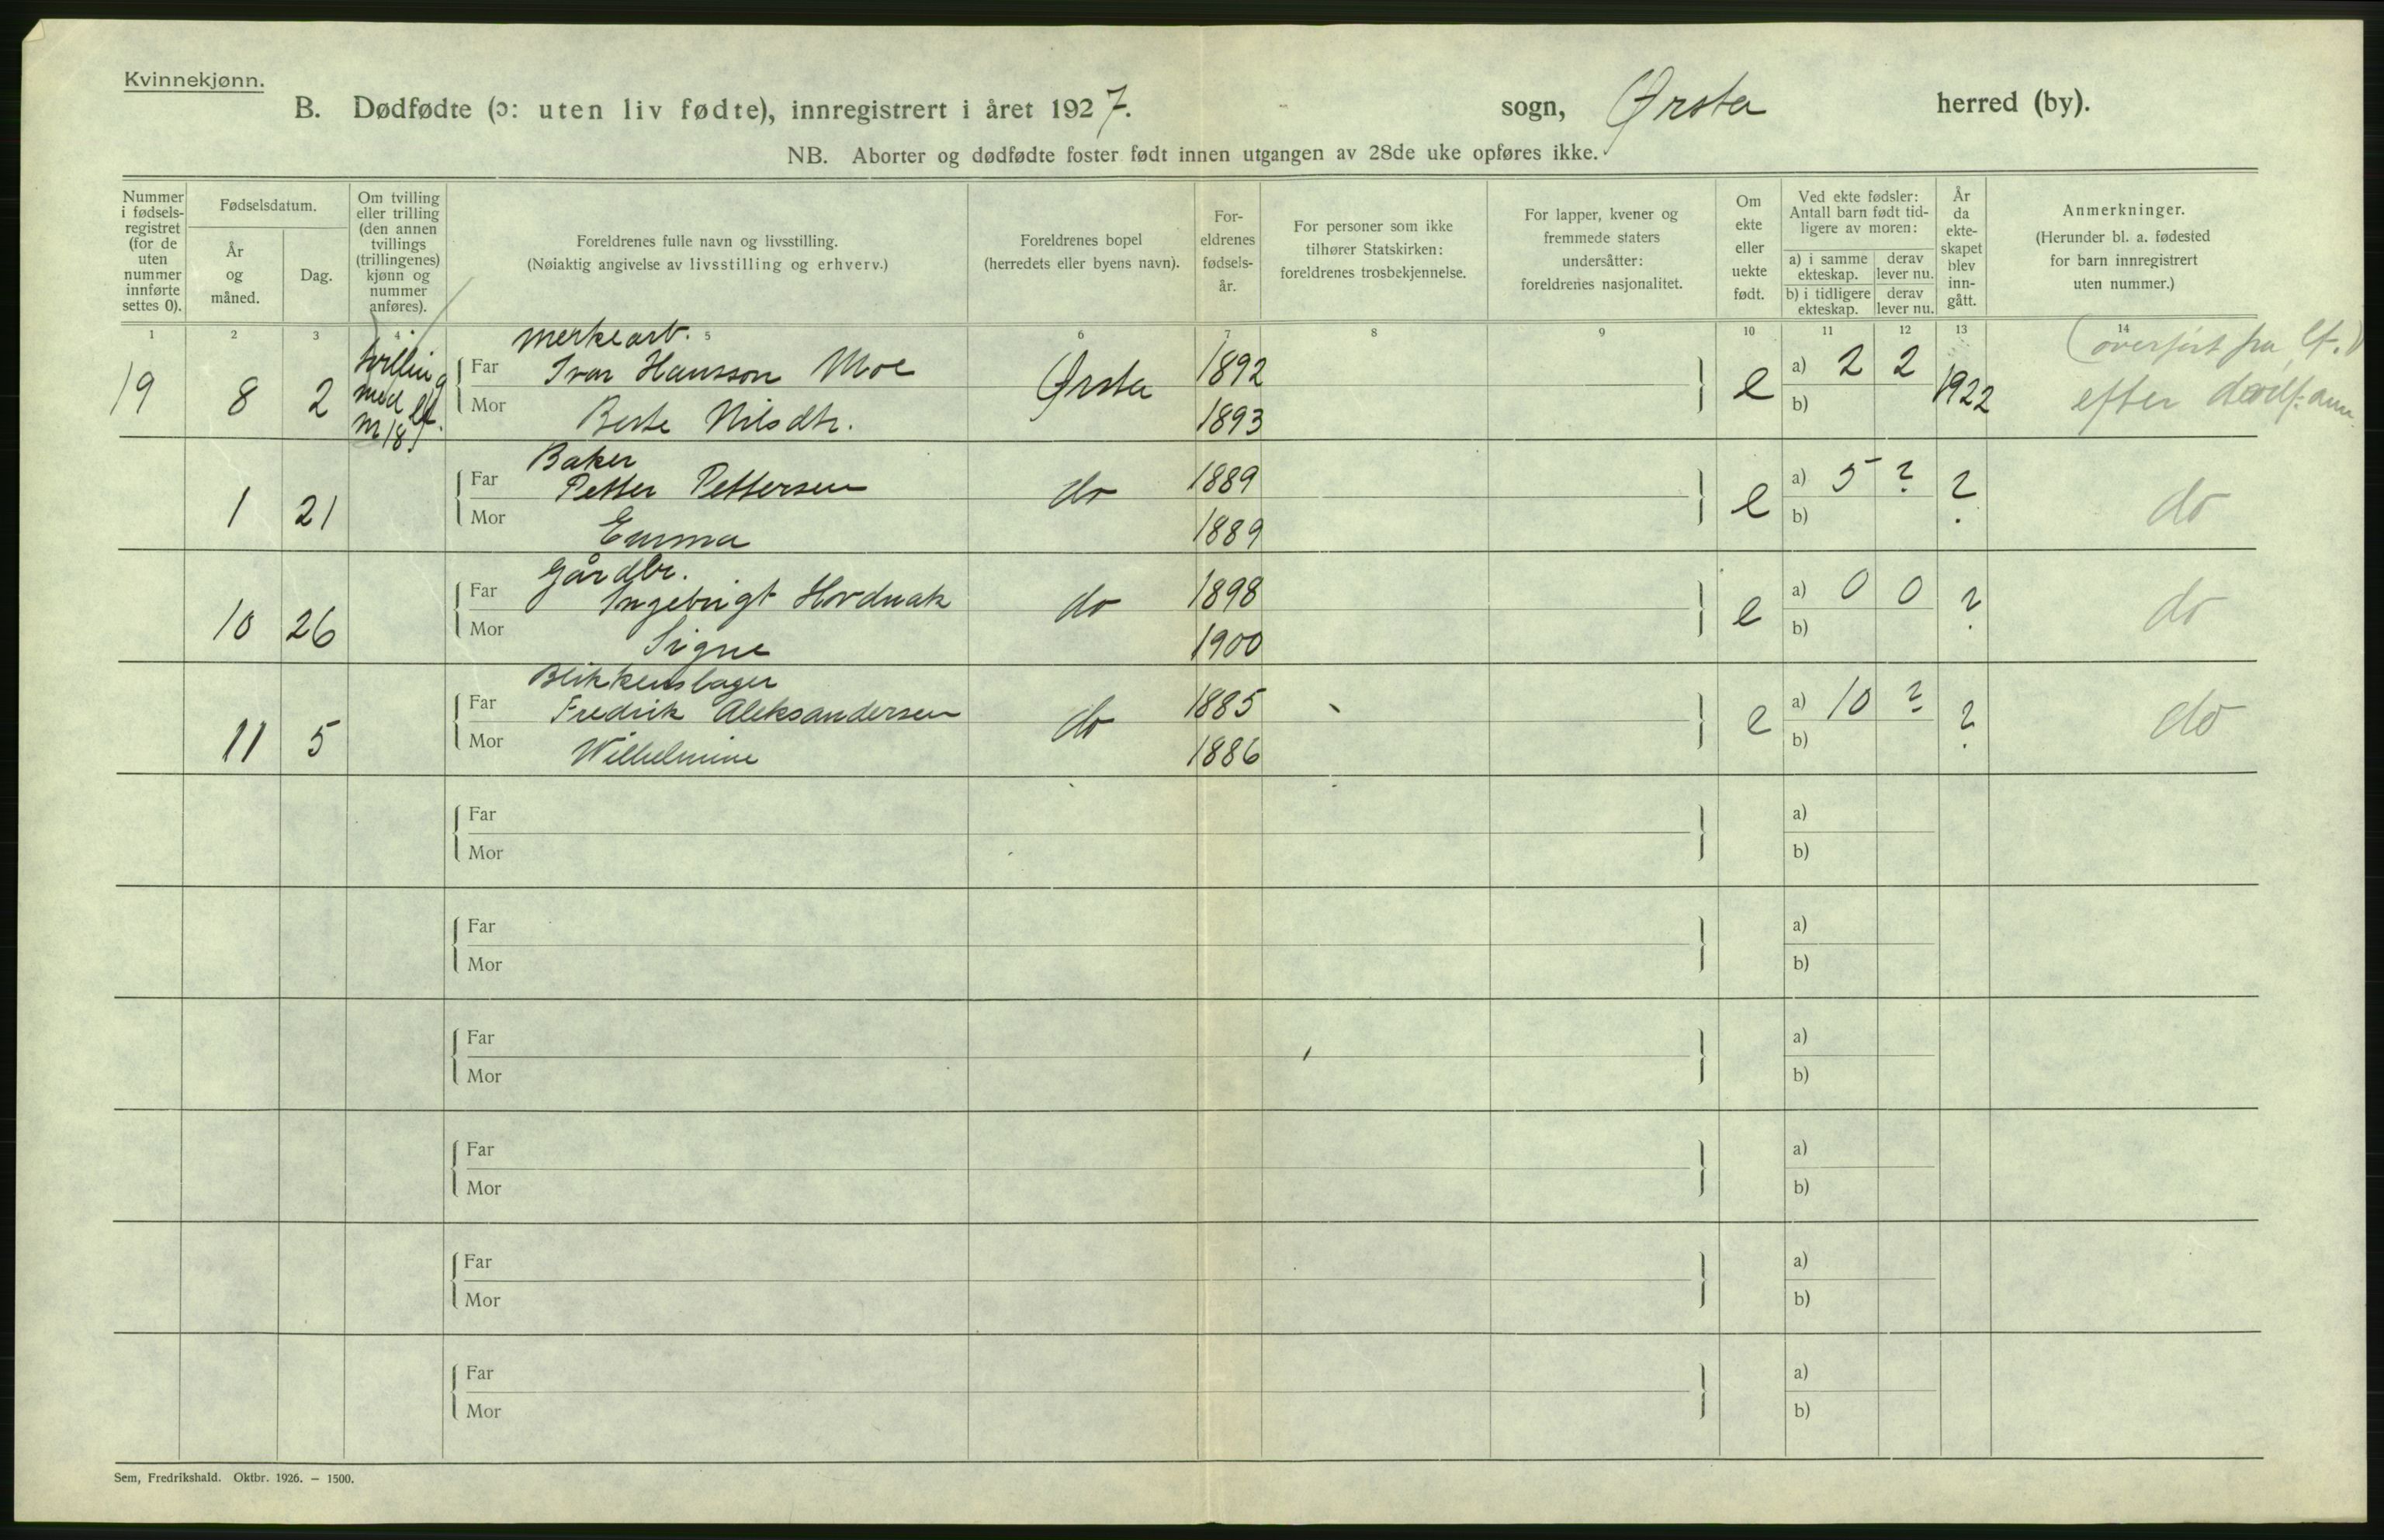 Kvinnekjønn.
B. Dødfødte (ɔ: uten liv fødte), innregistrert i året 1927. sogn, Ørsta herred (by).
NB. Aborter og dødfødte foster født innen utgangen av 28de uke opføres ikke.
Nummer i fødsels-registret (for de uten nummer innførte settes 0).
Fødselsdatum.
År og måned.
Dag.
Om tvilling eller trilling (den annen tvillings (trillingenes) kjønn og nummer anføres).
Foreldrenes fulle navn og livsstilling.
(Nøiaktig angivelse av livsstilling og erhverv.)
Foreldrenes bopel
(herredets eller byens navn).
For-eldrenes fødsels-år.
For personer som ikke tilhører Statskirken: foreldrenes trosbekjennelse.
For lapper, kvener og fremmede staters undersåtter: foreldrenes nasjonalitet.
Om ekte eller uekte født.
Ved ekte fødsler: Antall barn født tid-ligere av moren:
a) i samme ekteskap. derav lever nu.
b) i tidligere ekteskap. derav lever nu.
År da ekte-skapet blev inn-gått.
Anmerkninger.
(Herunder bl. a. fødested for barn innregistrert uten nummer.)
1 2 3 4 5 6 7 8 9 10 11 12 13 14
merkearb. (overført fra lf.)
19 8 2 tvilling med lf. nr 18 Far Ivar Hansson Moe Ørsta 1892 e a) 2 2 1922 efter
Mor Berte Nilsdtr. 1893 b)
Baker
1 21 Far Petter Pettersen do 1889 e a) 5 ? ? do
Mor Emma 1889 b)
Gårdbr.
10 26 Far Ingebrigt Hovdnak do 1898 e a) 0 0 ? do
Mor Signe 1900 b)
Blikkenslager
11 5 Far Fredrik Aleksandersen do 1885 e a) 10 ? ? do
Mor Wilhelmine 1886 b)
Far a)
Mor b)
Far a)
Mor b)
Far a)
Mor b)
Far a)
Mor b)
Far a)
Mor b)
Far a)
Mor b)
Sem, Fredrikshald. Oktbr. 1926. – 1500.